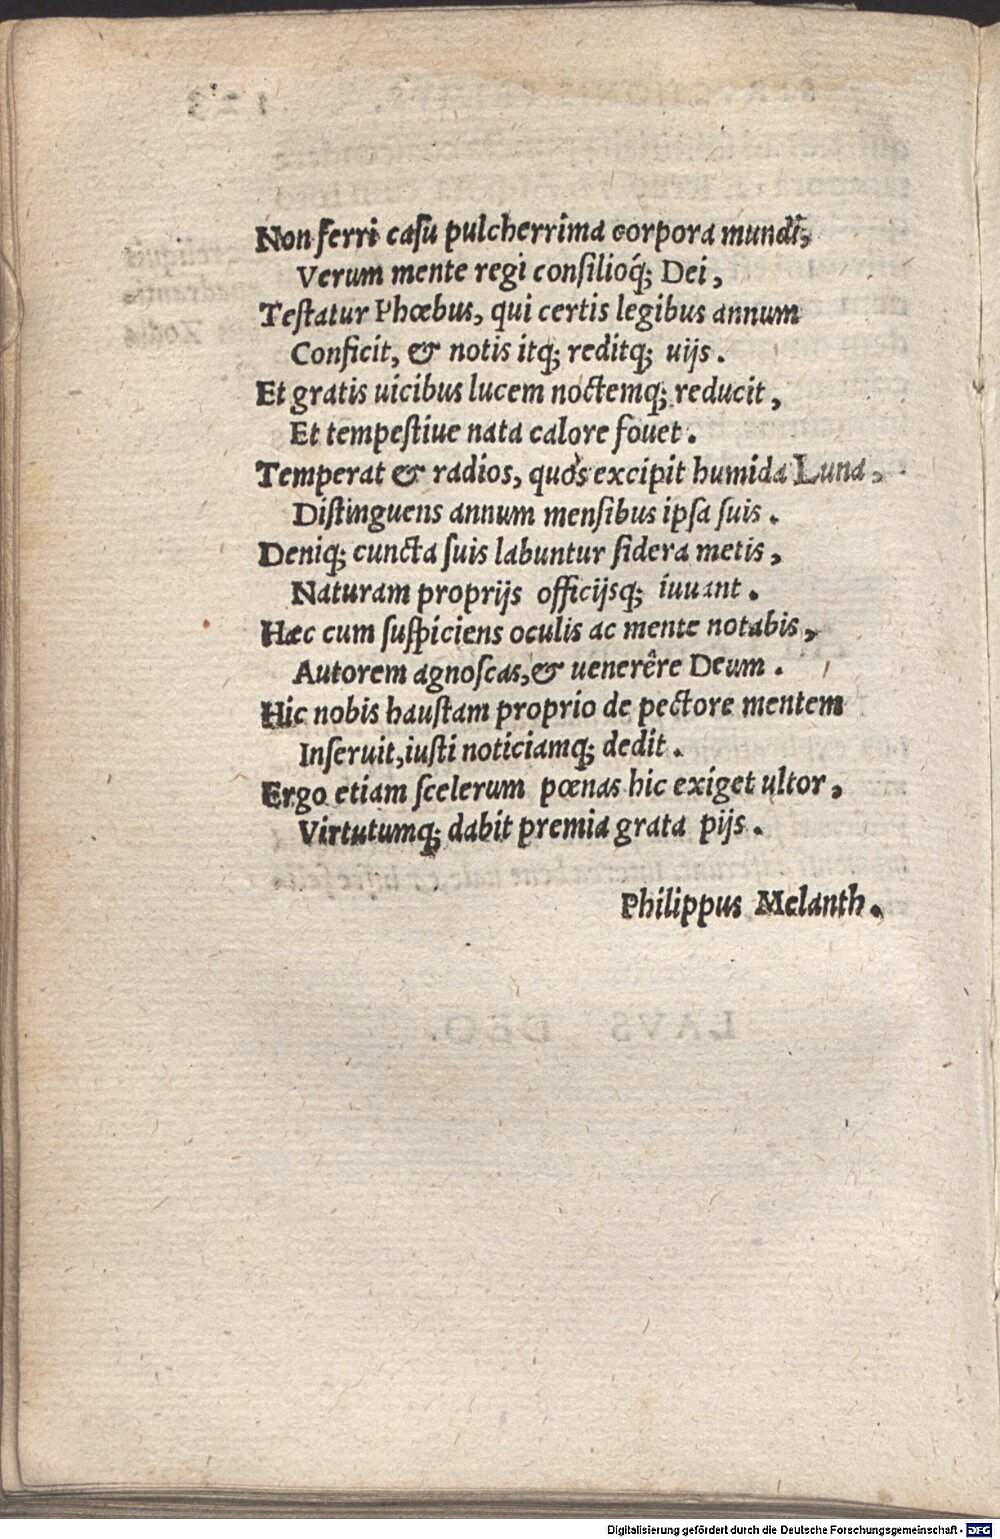 Non ferri casu pulcherrima corpora mundi,
Verum mente regi consilioq́; Dei,
Testatur Phœbus, qui certis legibus annum
Conficit, & notis itq; reditq; uijs.
Et gratis uicibus lucem noctemq; reducit,
Et tempestiue nata calore fouet.
Temperat & radios, quos excipit humida Luna,
Distinguens annum mensibus ipsa suis.
Deniq; cuncta suis labuntur sidera metis,
Naturam proprijs officijsq; iuuant.
Hæc cum suspiciens oculis ac mente notabis,
Autorem agnoscas, & uenerêre Deum.
Hic nobis haustam proprio de pectore mentem
Inseruit, iusti noticiamq; dedit.
Ergo etiam scelerum pœnas hic exiget ultor,
Virtutumq; dabit premia grata pijs.
Philippus Melanth.
LAVS DEO.
Digitalisierung gefördert durch die Deutsche Forschungsgemeinschaft - DFG